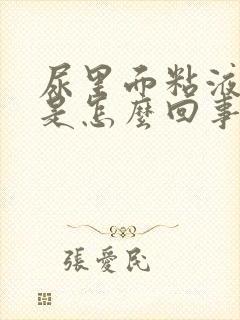 尿里面粘液
是怎麼回事
張愛民